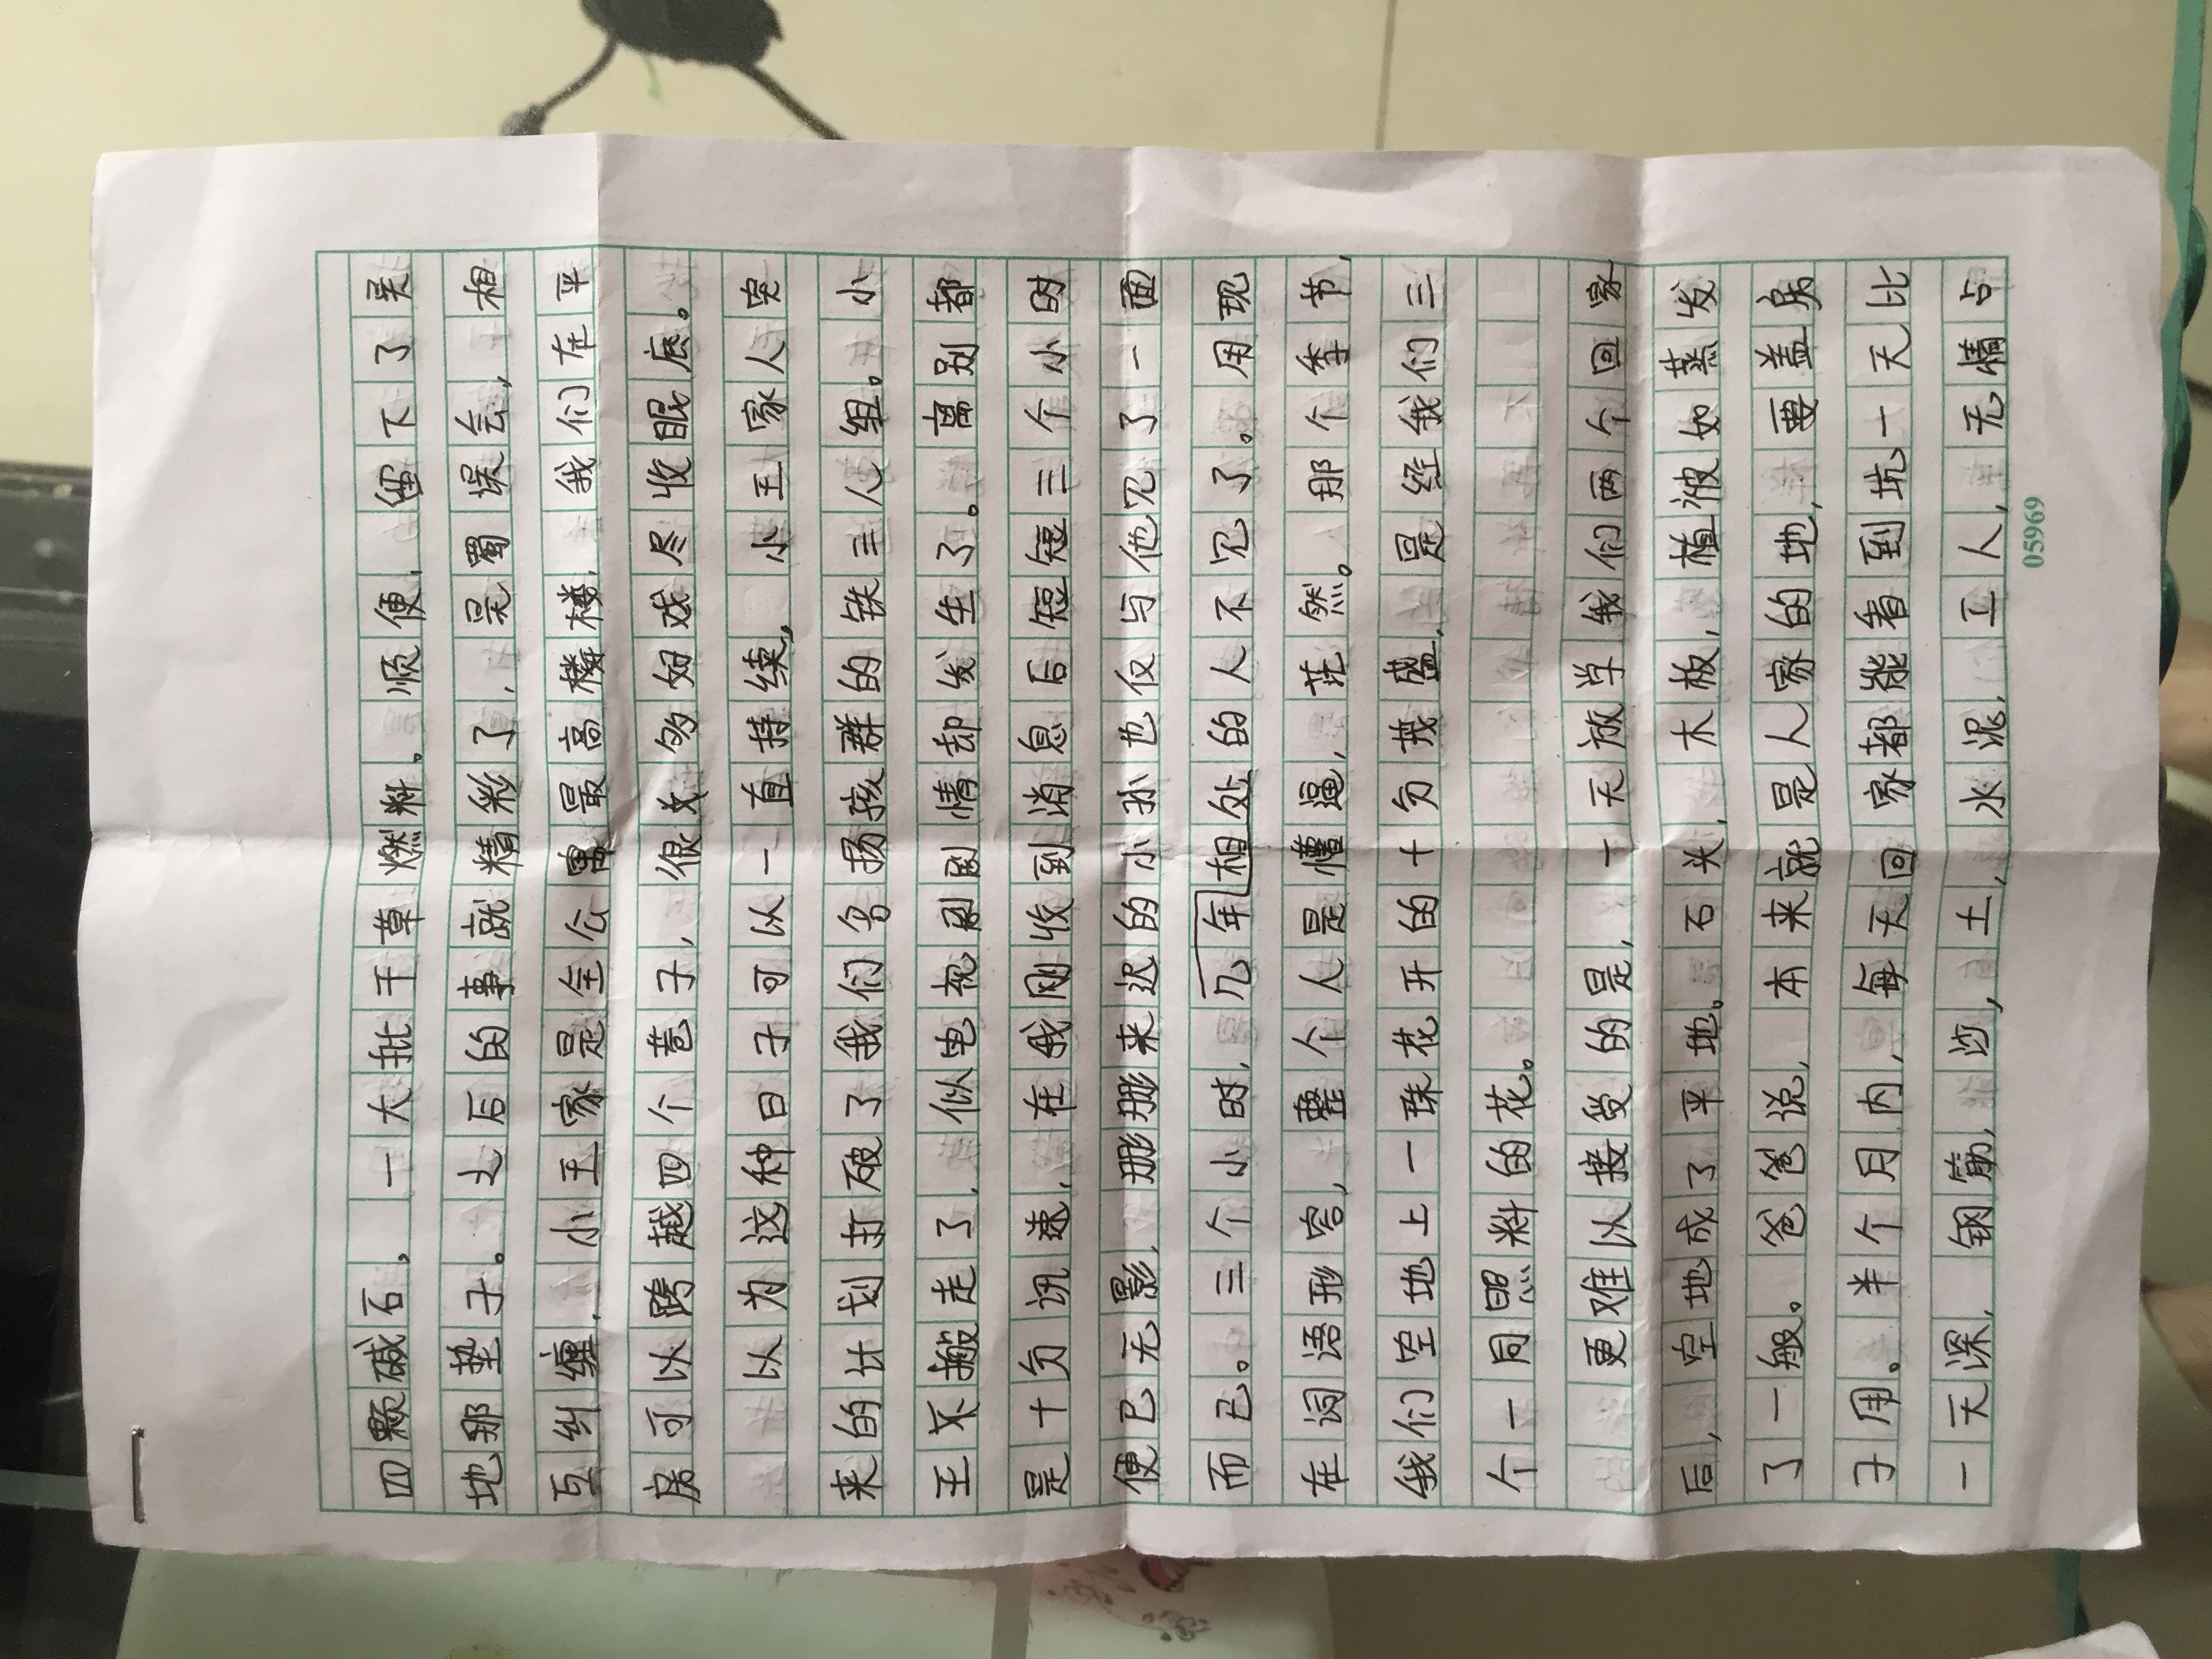 四颗碱石，一大批干草燃料。顺便，留下了吴
地那垫子。之后的事就精彩了，吴蜀误会，相
互纠缠，小王家是全公寓最高楼楼，我们在平
房可以跨越四个巷子，很大的好戏尽收眼底。
以为这种日子可以一直持续，小五家人突
来的计划打破了我们名扬孩群的铁三人组。小
王不搬走了，似电视剧剧情却发生了。离别都
是十分讯速，在我刚收到消息后短短三个小时
便已无影，那那来迟的小孙也仅与他见了一面
而已。三个小时，几年相处的人不见了。用现
在词语形容，整个人是懵逼，茫然。那个季节，
我们空地上一珠花开的十分茂盛，是经我们三
个一同照料的花。
更难以接受的是，一天放学我们两个回家
后，空地成了平地。石头，木板，植被如蒸发
了一般。爸爸说，本来就是人家的地，要盖房
子用。半个月内，每天回家都能看到坑一天比
一天深，钢筋，沙，土，水泥，工人，无情占
05969